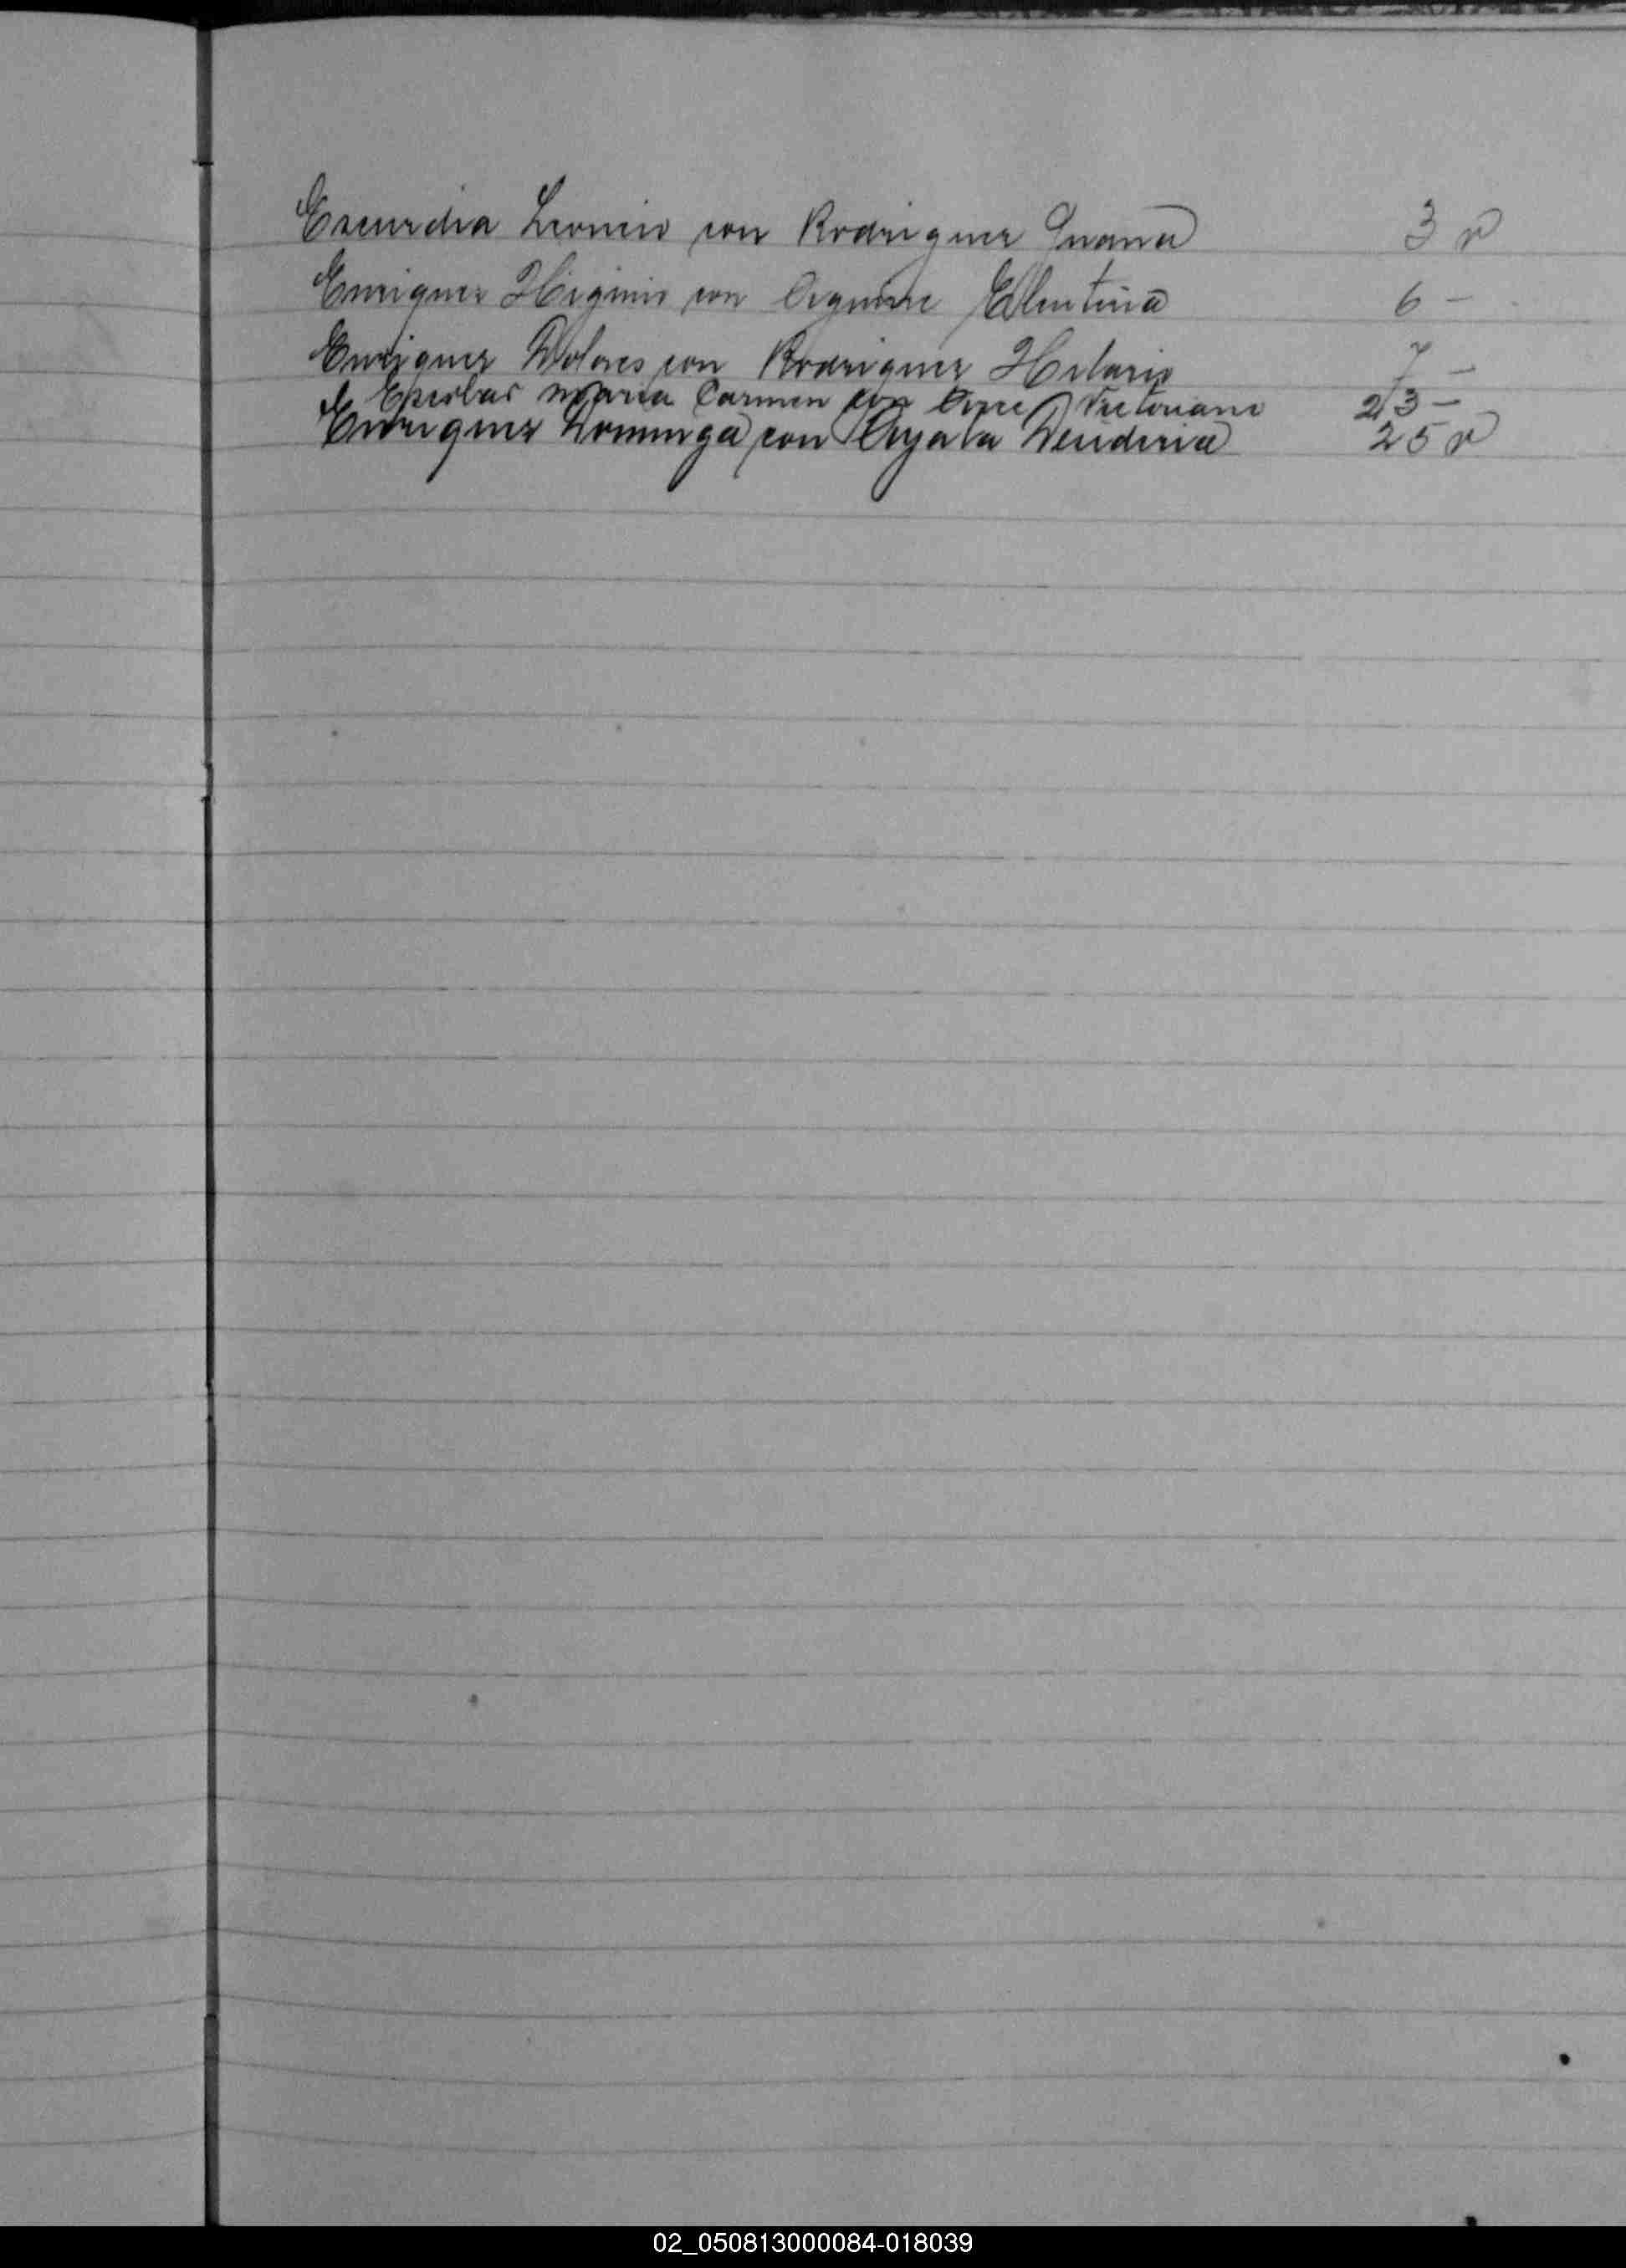 Escurdia Leoncio con Rodriguez Juana 3 v
Enriquez Higinio con Aguirre Clementina 6 -
Enriquez Dolores con Rodriguez Hilario 7 -
Escobar Maria Carmen con Victoriano 23 -
Enriquez Dominga con Ayala Desideria 25 v
02_050813000084-018039